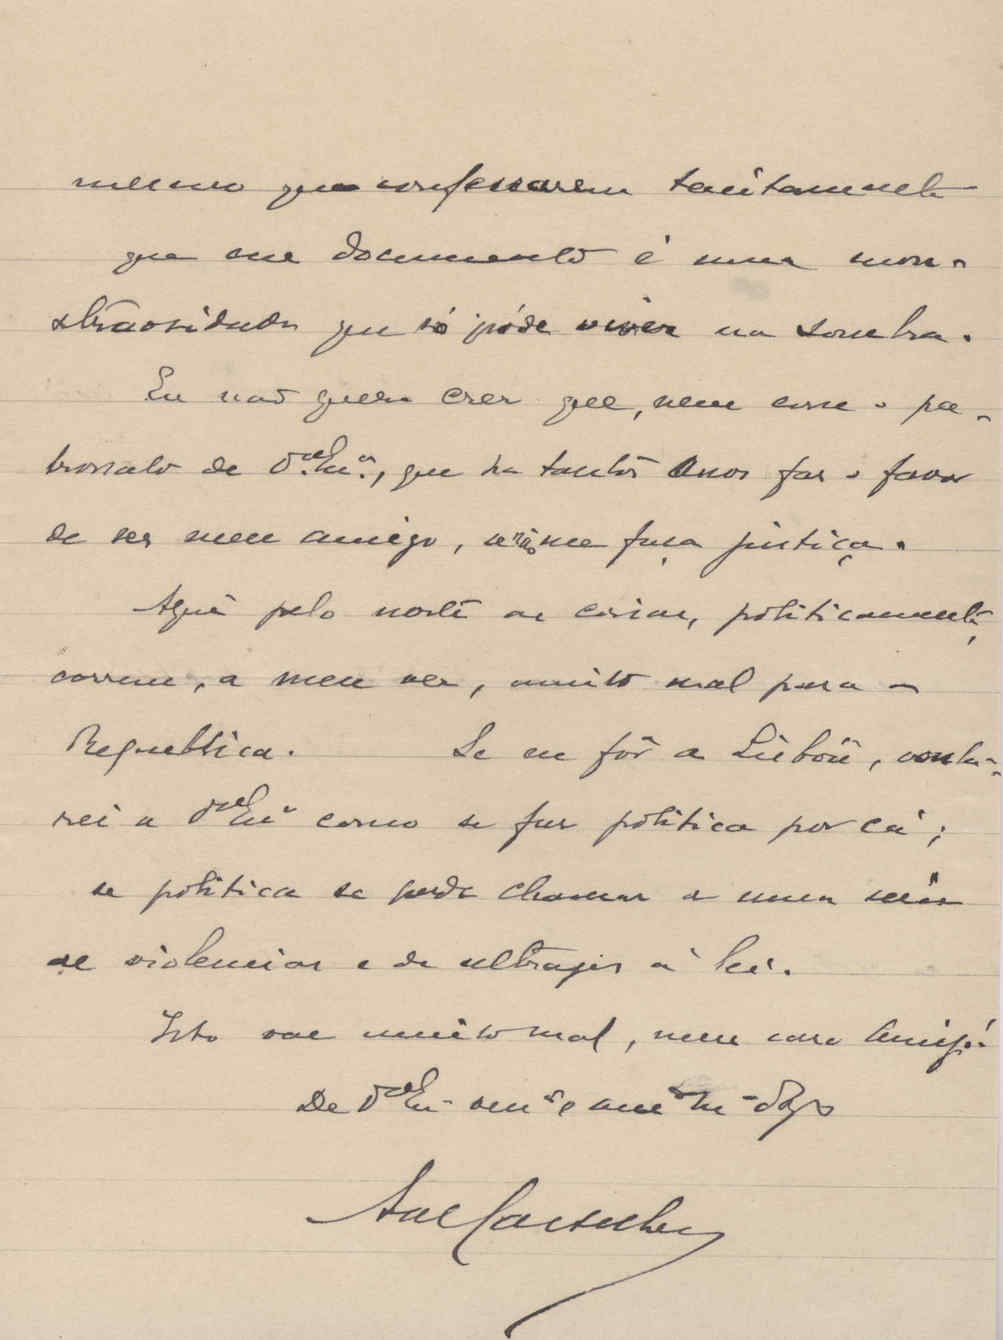 mesmo que confessarem tacitamente
que esse documento é uma mon-
struosidade que só póde viver na sombra.
Eu não quero crer que, nem com o pa-
tronato de V. Exª., que ha tantos anos faz o favor
de ser meu amigo, se me faça justiça.
Aqui pelo norte as coisas, politicamente,
correm, a meu ver, muito mal para a
Republica. Se eu fôr a Lisbôa, conta-
rei a V. Exª como se faz politica por cá;
se politica se pode chamar a uma série
de violencias e de ultrajes á lei.
Isto vae muito mal, meu caro Amigo!
De V. Exª